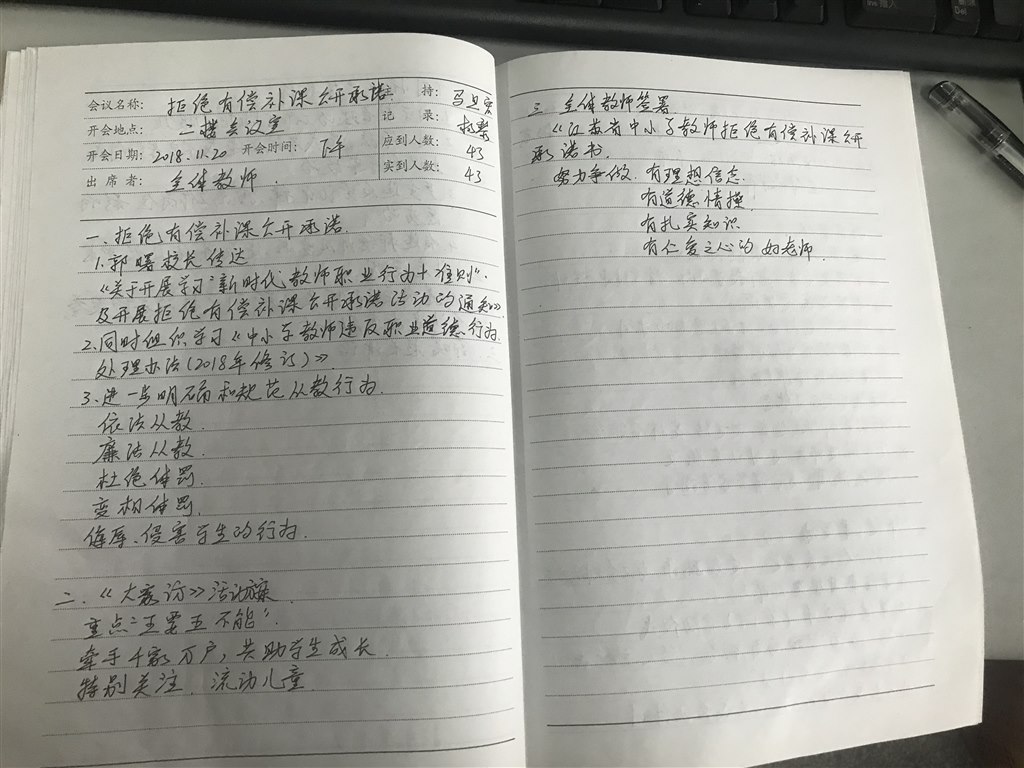 会议名称： 拒绝有偿补课公开承诺 主 持：
开会地点： 二楼会议室 记 录：
开会日期： 2018.11.20 开会时间： 下午 应到人数： 43
出席者： 全体教师. 实到人数： 43
一、拒绝有偿补课公开承诺.
1.郭曙校长传达
《关于开展学习"新时代教师职业行为十项准则".
及开展拒绝有偿补课公开承诺活动的通知》
2.同时组织学习《中小学教师违反职业道德行为
处理办法(2018年修订)》.
3.进一步明确和规范从教行为.
依法从教.
廉洁从教.
杜绝体罚.
变相体罚.
侮辱、侵害学生的行为.
二.《大家访》活动方案.
重点"五要五不能".
牵手千家万户,共助学生成长.
特别关注.流动儿童.
三. 全体教师签署
《江苏省中小学教师拒绝有偿补课公开
承诺书.
努力争做.有理想信念.
有道德情操.
有扎实知识.
有仁爱之心的好老师.